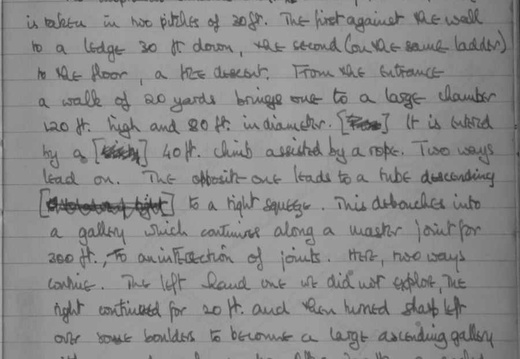 is taken in two pitches of 30ft. The first against the wall
to a ledge 30 ft down, the second (on the same ladder)
to the floor, a free descent. From the entrance
a walk of 20 yards brings one to a large chamber
120 ft. high and 80 ft. in diameter. [] It is entered
by a [] 40 ft. climb assisted by a rope. Two ways
lead on. The opposite one leads to a tube descending
[] to a tight squeeze. This debouches into
a gallery which continues along a master joint for
200 ft., to an intersection of joints. Here, two ways
continue. The left hand one we did not explore, the
right continued for 20 ft. and then turned sharp left
over some boulders to become a large ascending gallery